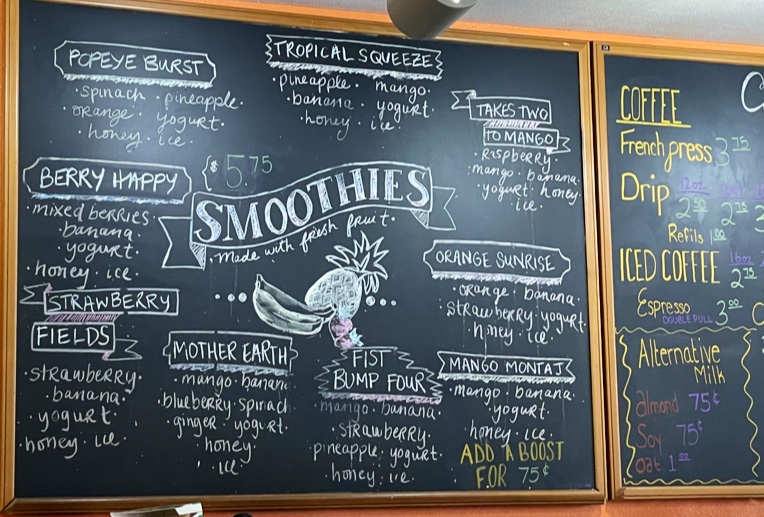 POPEYE BURST
spinach · pineapple ·
· orange · yogurt ·
· honey ice ·
TROPICAL SQUEEZE
· pineapple · mango ·
· banana · yogurt ·
honey · ice ·
TAKES TWO
TO MANGO
· Raspberry ·
· mango · banana ·
· yogurt · honey ·
ice ·
BERRY HAPPY
· mixed berries ·
· banana ·
· yogurt ·
· honey · ice ·
{$5.75
SMOOTHIES
· made with fresh fruit ·
ORANGE SUNRISE
· orange · banana ·
strawberry · yogurt ·
honey · ice ·
STRAWBERRY
FIELDS
· strawberry ·
· banana ·
· yogurt ·
· honey · ice ·
MOTHER EARTH
· mango · banana
· blueberry · spinach
· ginger · yogurt ·
honey ·
· ice
FIST
BUMP FOUR
mango · banana ·
· strawberry ·
pineapple · yogurt ·
honey · ice ·
MANGO MONTAJ
· mango · banana ·
· yogurt ·
· honey · ice ·
ADD A BOOST
FOR 75¢
COFFEE
French press 3 75
Drip 12oz
2 50 2 75
Refils 1 00
ICED COFFEE 16oz
2 75
Espresso 3 00
DOUBLE PULL
Alternative
Milk
almond 75¢
Soy 75¢
oat 1 00